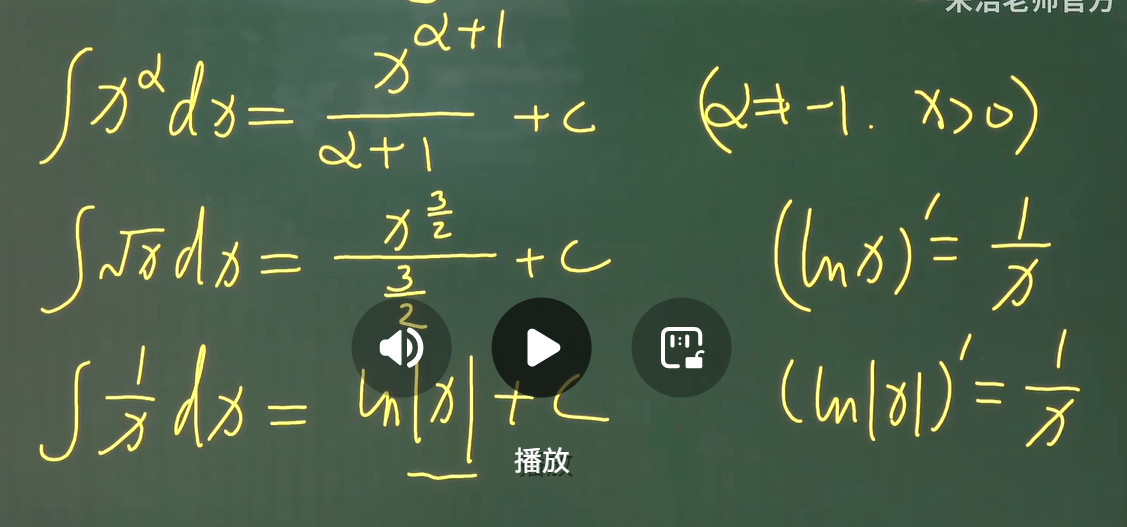 宋浩老师官方
∫x^α dx = x^(α+1)/(α+1) + c (α≠-1. x>0)
∫√x dx = x^(3/2)/(3/2) + c (ln x)' = 1/x
∫1/x dx = ln|x| + c (ln|x|)' = 1/x
播放